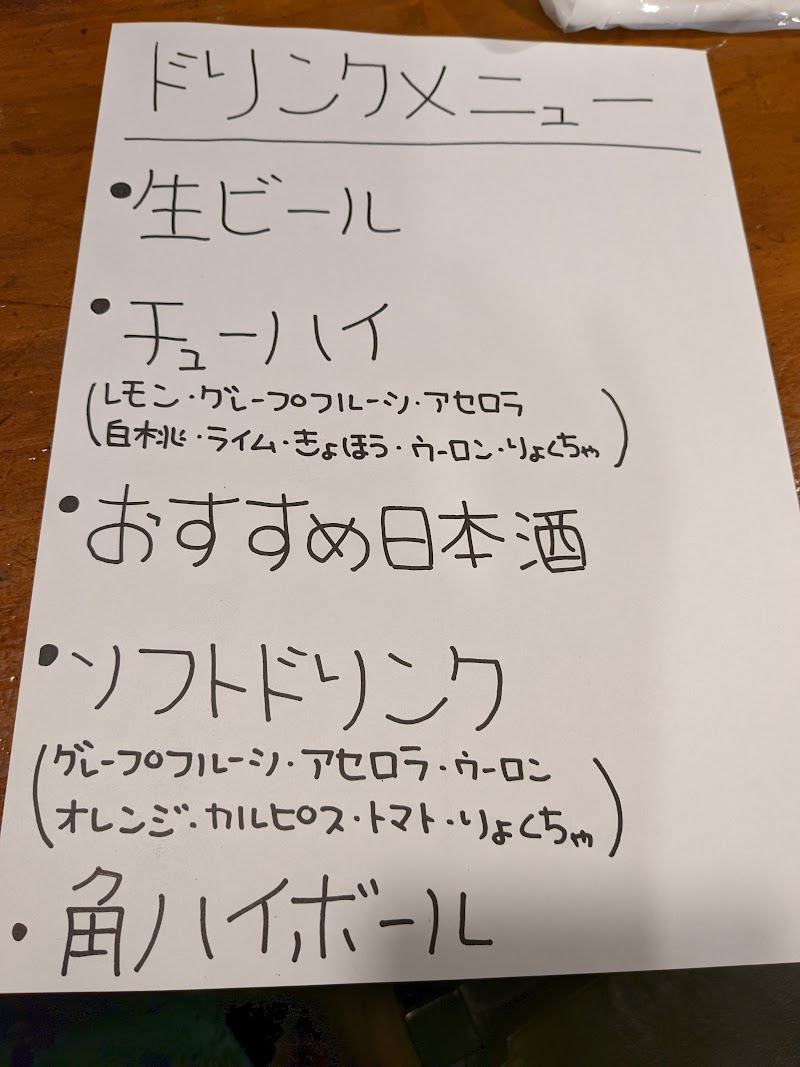 ドリンクメニュー
•生ビール
•チューハイ
(レモン・グレープフルーツ・アセロラ
白桃・ライム・きょほう・ウーロン・りょくちゃ)
•おすすめ日本酒
•ソフトドリンク
(グレープフルーツ・アセロラ・ウーロン
オレンジ・カルピス・トマト・りょくちゃ)
•角ハイボール